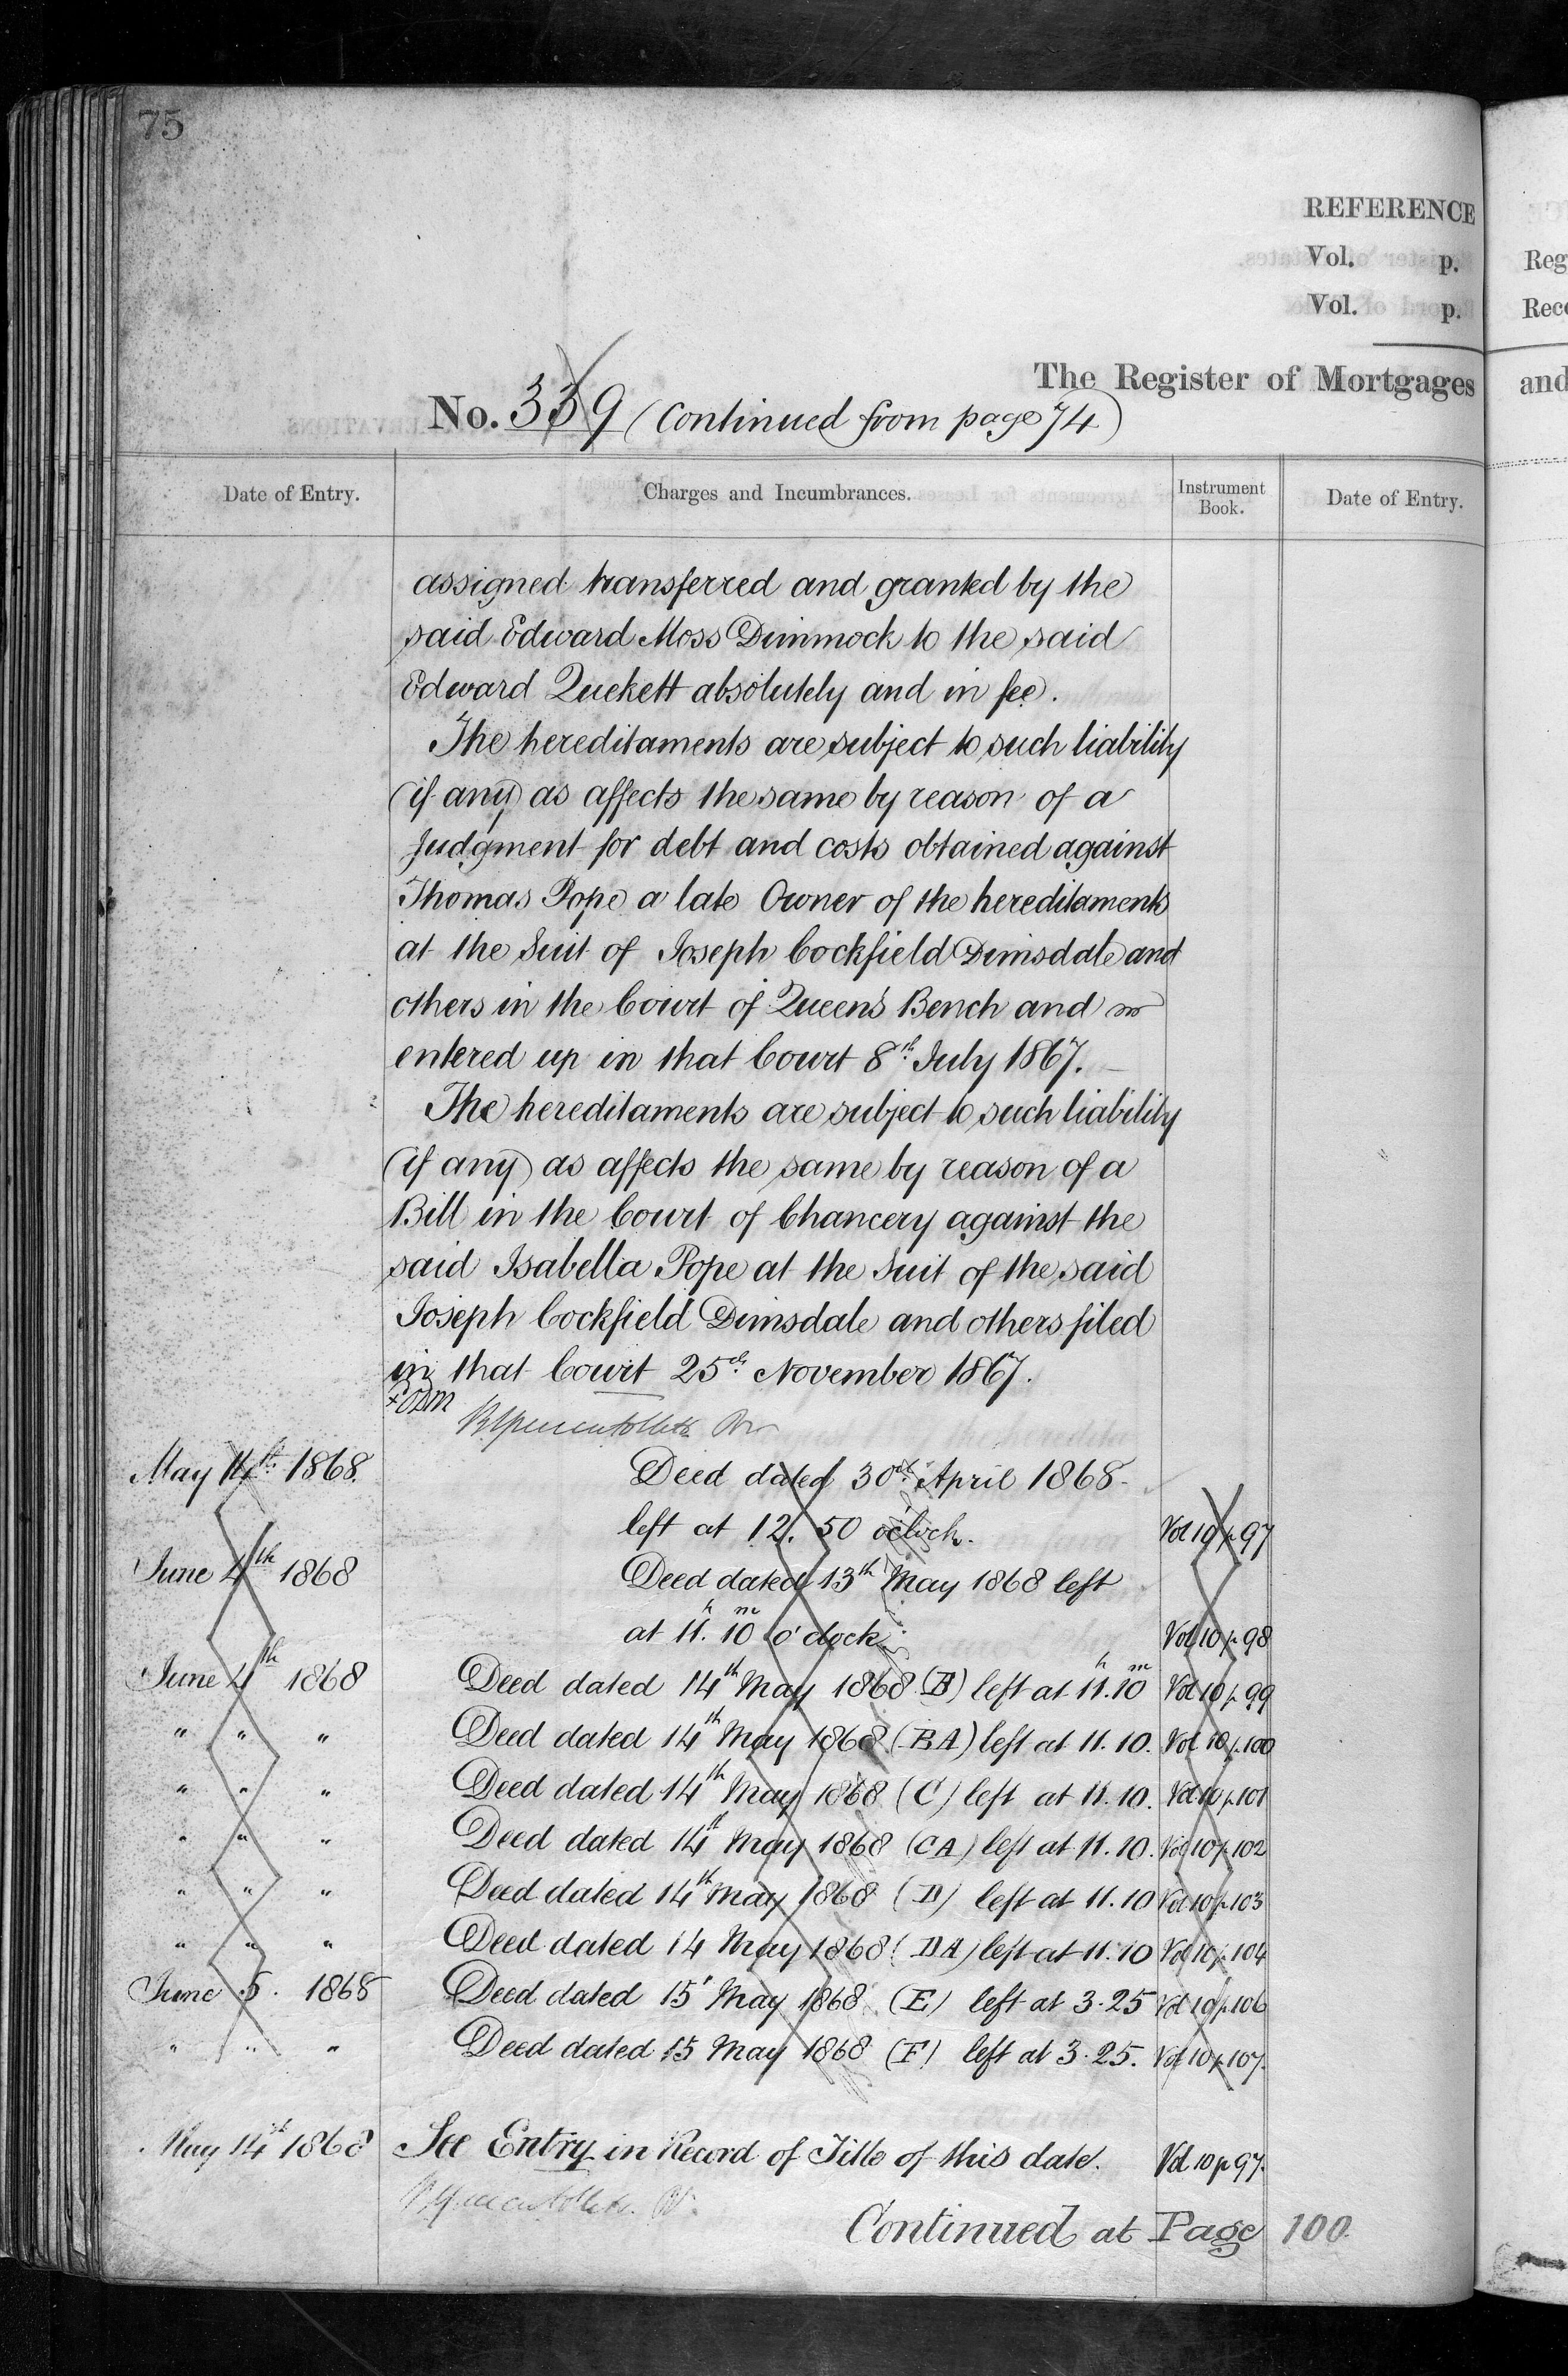 75
REFERENCE
Vol. p.
Vol. p.
Reg
Reco
The Register of Mortgages
and
No. 339 (Continued from page 74)
Date of Entry.
Charges and Incumbrances.
Instrument Book.
Date of Entry.
assigned transferred and granted by the
said Edward Moss Dimmock to the said
Edward Quekett absolutely and in fee.
The hereditaments are subject to such liability
(if any) as affects the same by reason of a
Judgment for debt and costs obtained against
Thomas Pope a late Owner of the hereditaments
at the Suit of Joseph Cockfield Dimsdale and
others in the Court of Queen's Bench and
entered up in that Court 8th July 1867.
The hereditaments are subject to such liability
(if any) as affects the same by reason of a
Bill in the Court of Chancery against the
said Isabella Pope at the Suit of the said
Joseph Cockfield Dimsdale and others filed
in that Court 25th November 1867.
May 14th 1868. Deed dated 30th April 1868
left at 12. 50 o'clock. Vol 10 p 97
June 4th 1868 Deed dated 13th May 1868 left
at 11.h 10m o'clock Vol 10 p 98
June 4th 1868 Deed dated 14th May 1868 (B) left at 11.h 10m Vol 10 p 99
" " " Deed dated 14th May 1868 (BA) left at 11. 10. Vol 10 p 100
" " " Deed dated 14th May 1868 (C) left at 11. 10. Vol 10 p 101
" " " Deed dated 14th May 1868 (CA) left at 11. 10. Vol 10 p 102
" " " Deed dated 14th May 1868 (D) left at 11. 10 Vol 10 p 103
" " " Deed dated 14 May 1868 (DA) left at 11. 10 Vol 10 p 104
June 5. 1868 Deed dated 15' May 1868 (E) left at 3.25 Vol 10 p 106
" " " Deed dated 15 May 1868 (F) left at 3.25. Vol 10 p 107.
May 14th 1868 See Entry in Record of Title of this date. Vol 10 p 97.
Continued at Page 100.